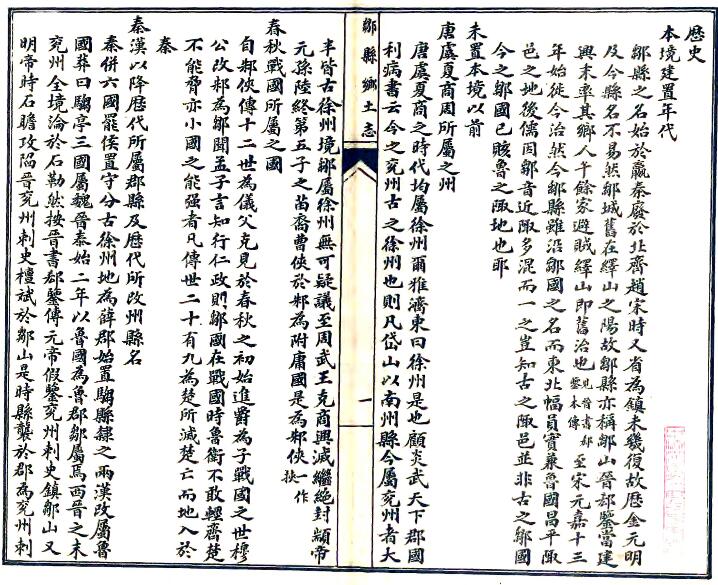 歷史
本境建置年代
鄒縣之名始於嬴秦廢於北齊趙宋時又省為鎮未幾復故歷金元明
及今縣名不易然鄒城舊在繹山之陽故鄒縣亦稱鄒山晉郗鑒當建
興末率其鄉人千餘家避賊繹山即舊治也見晉書郗鑒本傳至宋元嘉十三
年始徙今治然今鄒縣雖沿鄒國之名而東北幅員實兼魯國昌平陬
邑之地後儒因鄒音近陬多混而一之豈知古之陬邑並非古之鄒國
今之鄒國已賅魯之陬地也耶
未置本境以前
唐虞夏商周所屬之州
唐虞夏商之時代均屬徐州爾雅濟東曰徐州是也顧炎武天下郡國
利病書云今之兖州古之徐州也則凡岱山以南州縣今屬兖州者大
鄒縣鄉土志
一
半皆古徐州境鄒屬徐州無可疑議至周武王克商興滅繼絕封顓帝
元孫陸終第五子之苗裔曹俠於邾為附庸國是為邾俠一作挾
春秋戰國所屬之國
自邾俠傳十二世為儀父克見於春秋之初始進爵為子戰國之世穆
公改邾為鄒聞孟子言知行仁政則鄒國在戰國時魯衛不敢輕齊楚
不能脅亦小國之能强者凡傳世二十有九為楚所滅楚亡而地入於
秦
秦漢以降歷代所屬郡縣及歷代所改州縣名
秦併六國罷侯置守分古徐州地為薛郡始置騶縣隸之兩漢改屬魯
國莽曰騶亭三國屬魏晉泰始二年以魯國為魯郡鄒屬焉西晉之末
兖州全境淪於石勒然按晉書郗鑒傳元帝假鑒兖州刺史鎮鄒山又
明帝時石瞻攻陷晉兖州刺史檀斌於鄒山是時縣襲於郡為兖州刺